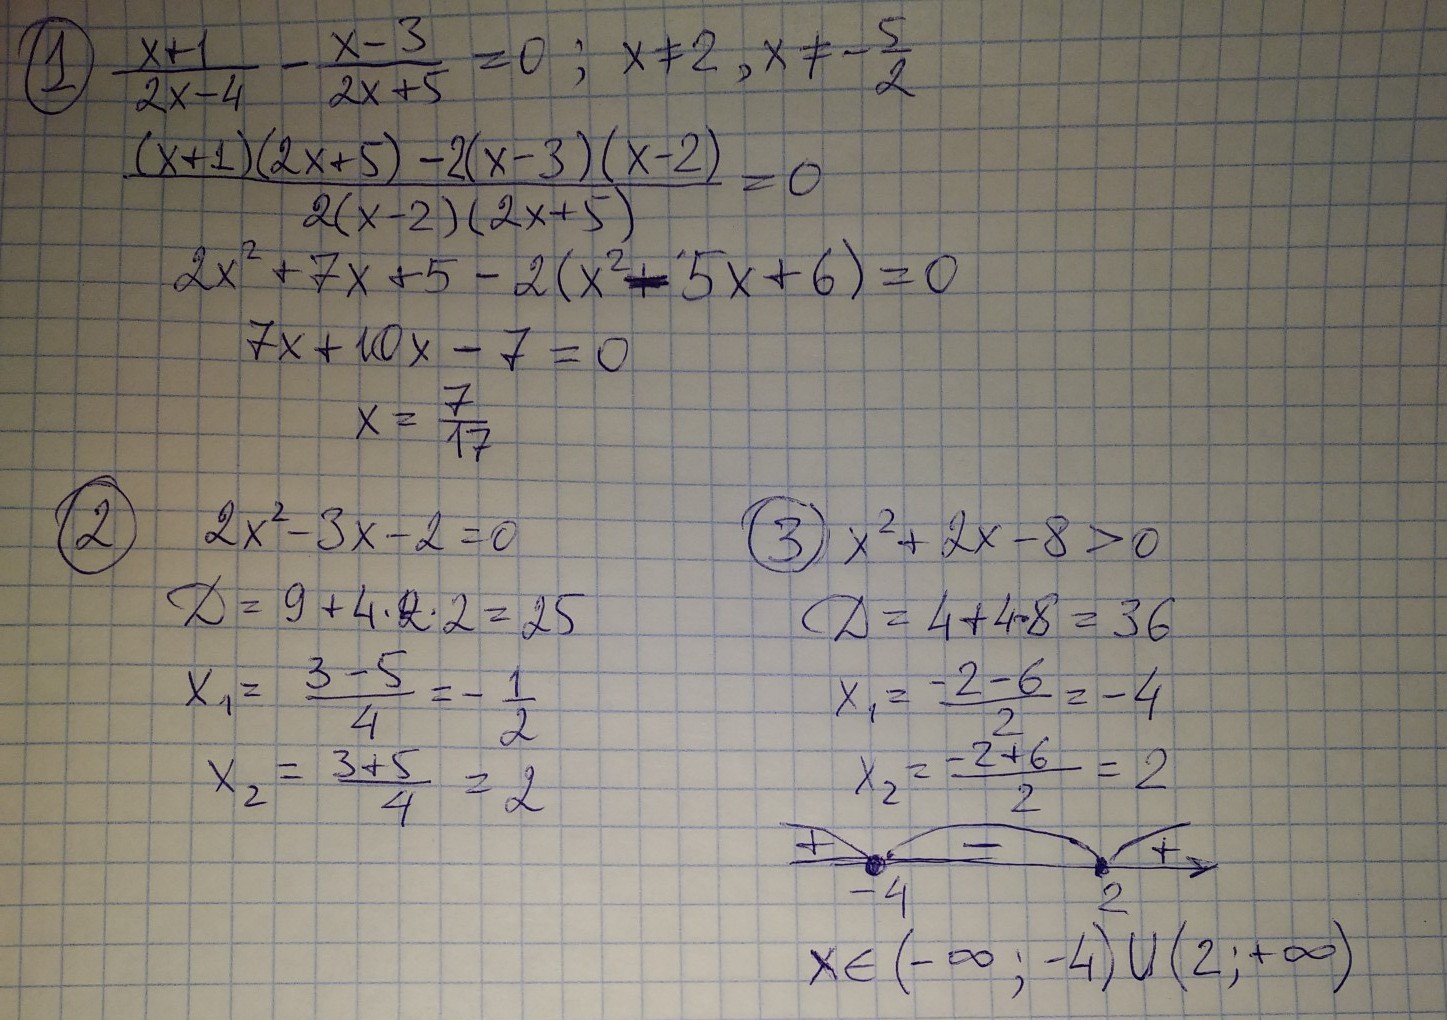 ① (x+1)/(2x-4) - (x-3)/(2x+5) = 0 ; x≠2 , x≠ -5/2
((x+1)(2x+5) -2(x-3)(x-2))/(2(x-2)(2x+5)) = 0
2x² + 7x + 5 - 2(x² - 5x + 6) = 0
7x + 10x - 7 = 0
x = 7/17
② 2x² - 3x - 2 = 0
D = 9 + 4·2·2 = 25
x₁ = (3-5)/4 = -1/2
x₂ = (3+5)/4 = 2
③ x² + 2x - 8 > 0
D = 4 + 4·8 = 36
x₁ = (-2-6)/2 = -4
x₂ = (-2+6)/2 = 2
+ - +
-4 2
x ∈ (-∞ ; -4) ∪ (2 ; +∞)